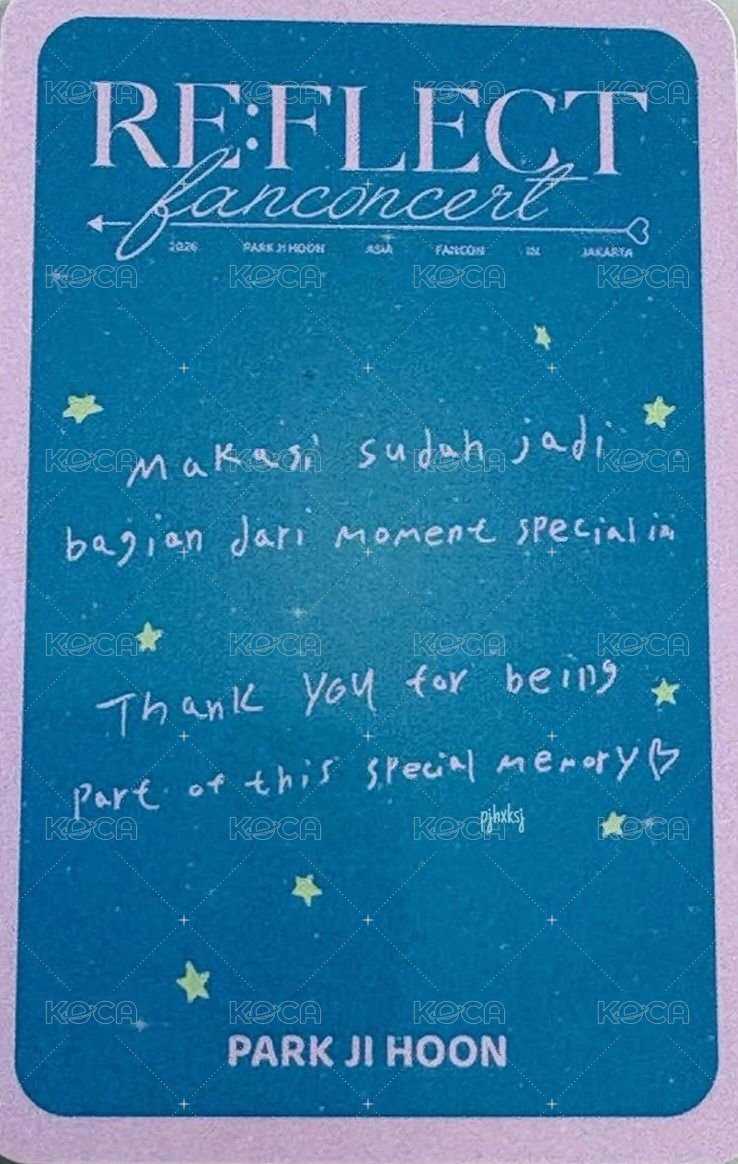 RE:FLECT
fanconcert
2026 PARK JI HOON ASIA FANCON IN JAKARTA
Makasi sudah jadi
bagian dari moment special ini
Thank you for being
part of this special memory♡
pjhxksj
PARK JI HOON
KOCA